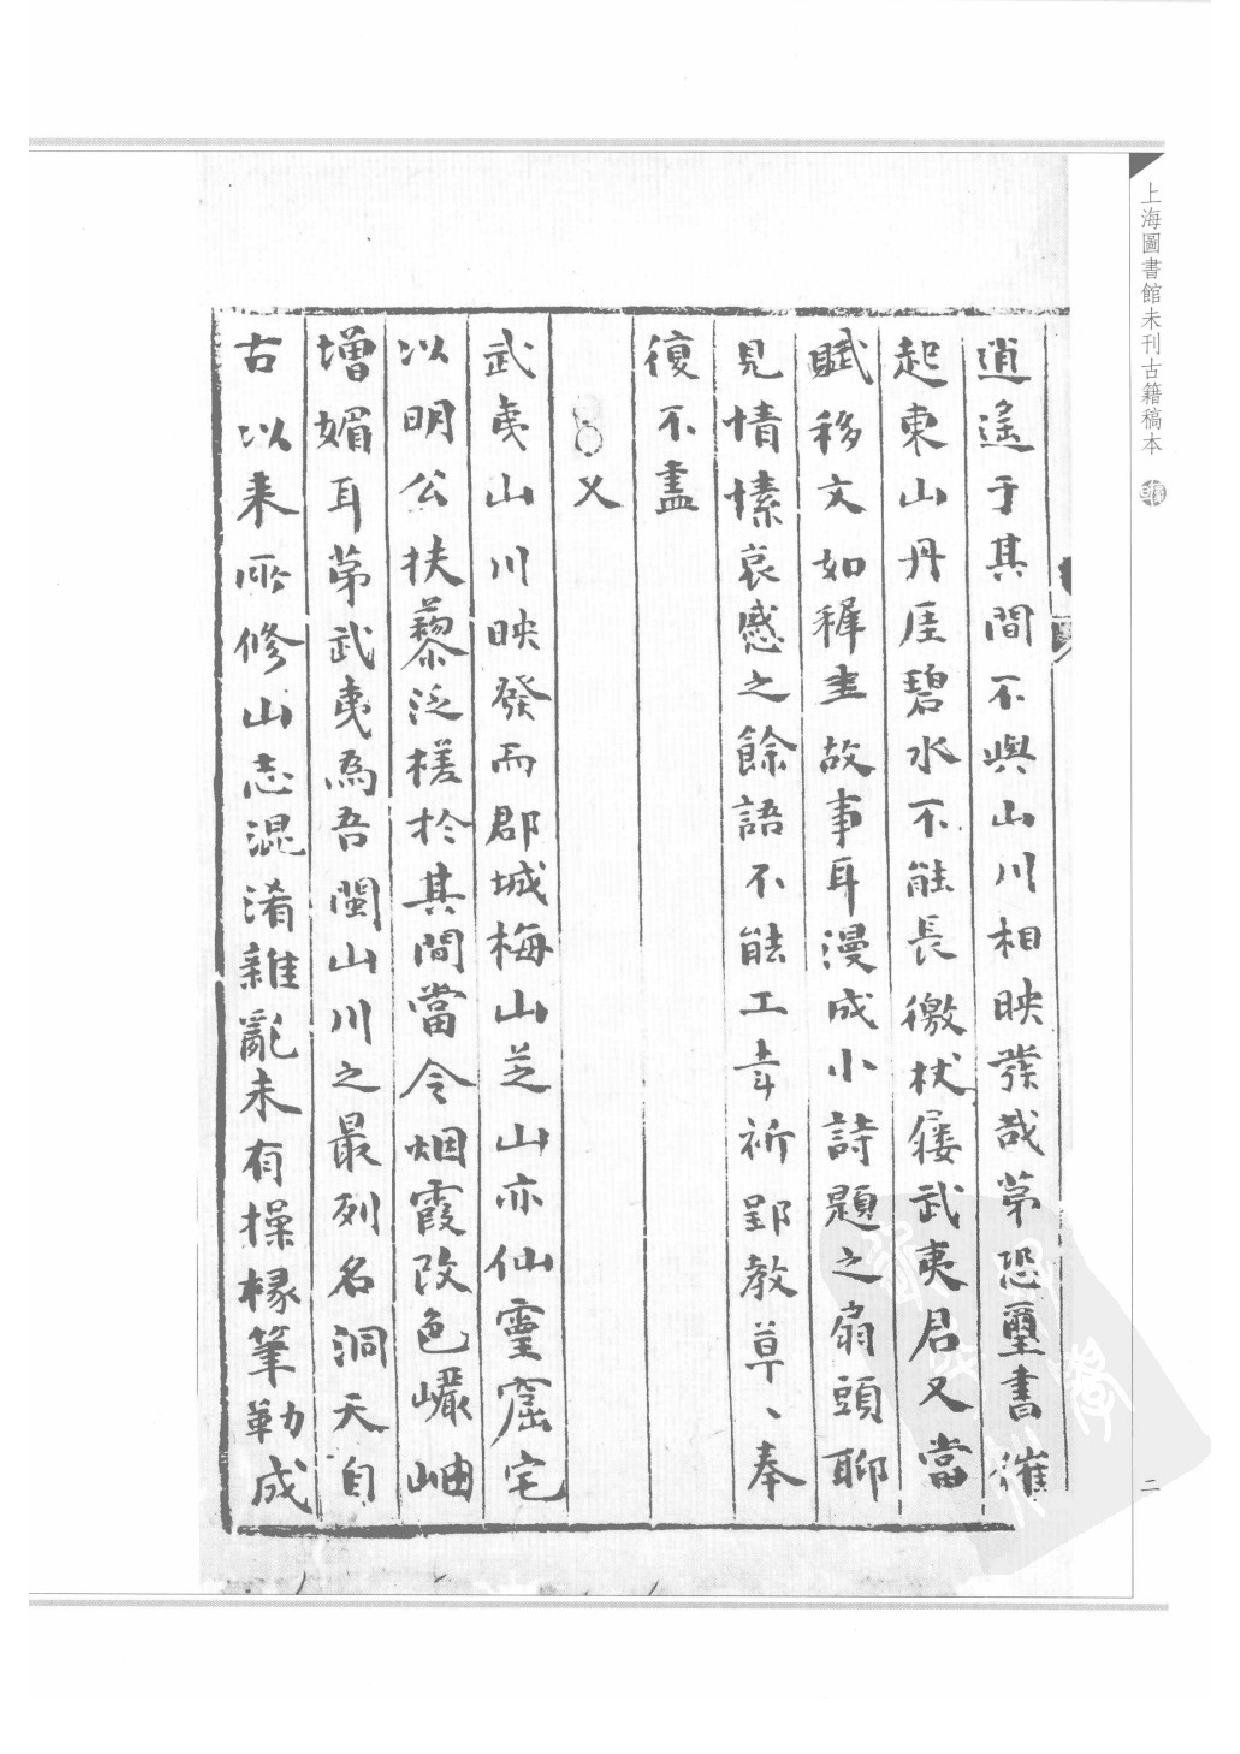 上海圖書館未刊古籍稿本
二
逍遙于其間不與山川相映發哉第恐璽書催
起東山丹厓碧水不能長徼杖屨武夷君又當
賦移文如稚圭故事耳漫成小詩題之扇頭聊
見情愫哀感之餘語不能工幸祈郢教草、奉
復不盡
又
武夷山川映發而郡城梅山芝山亦仙靈窟宅
以明公扶藜泛槎於其間當令烟霞改色巖岫
增媚耳第武夷為吾閩山川之最列名洞天自
古以来所修山志混淆雜亂未有操椽筆勒成